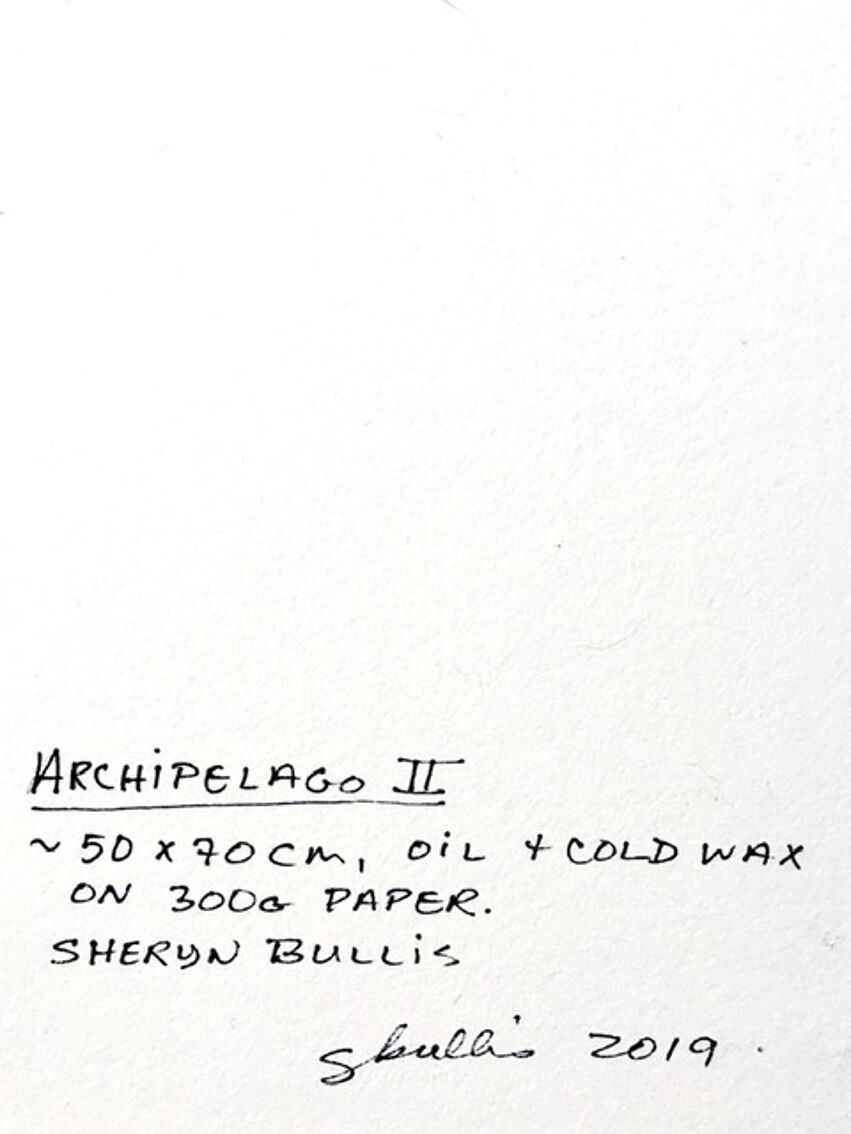 ARCHIPELAGO II
~ 50 x 70 cm, OIL + COLD WAX
ON 300G PAPER.
SHERYN BULLIS
Sbullis 2019.